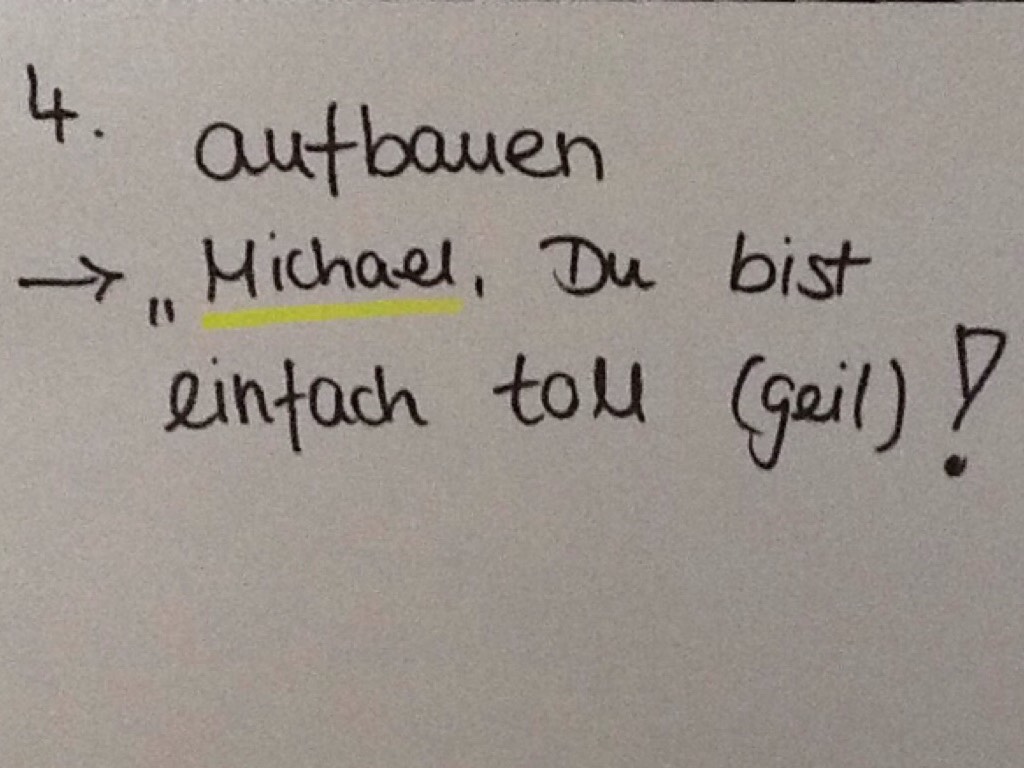 4. aufbauen
→ „Michael, Du bist
einfach toll (geil)!